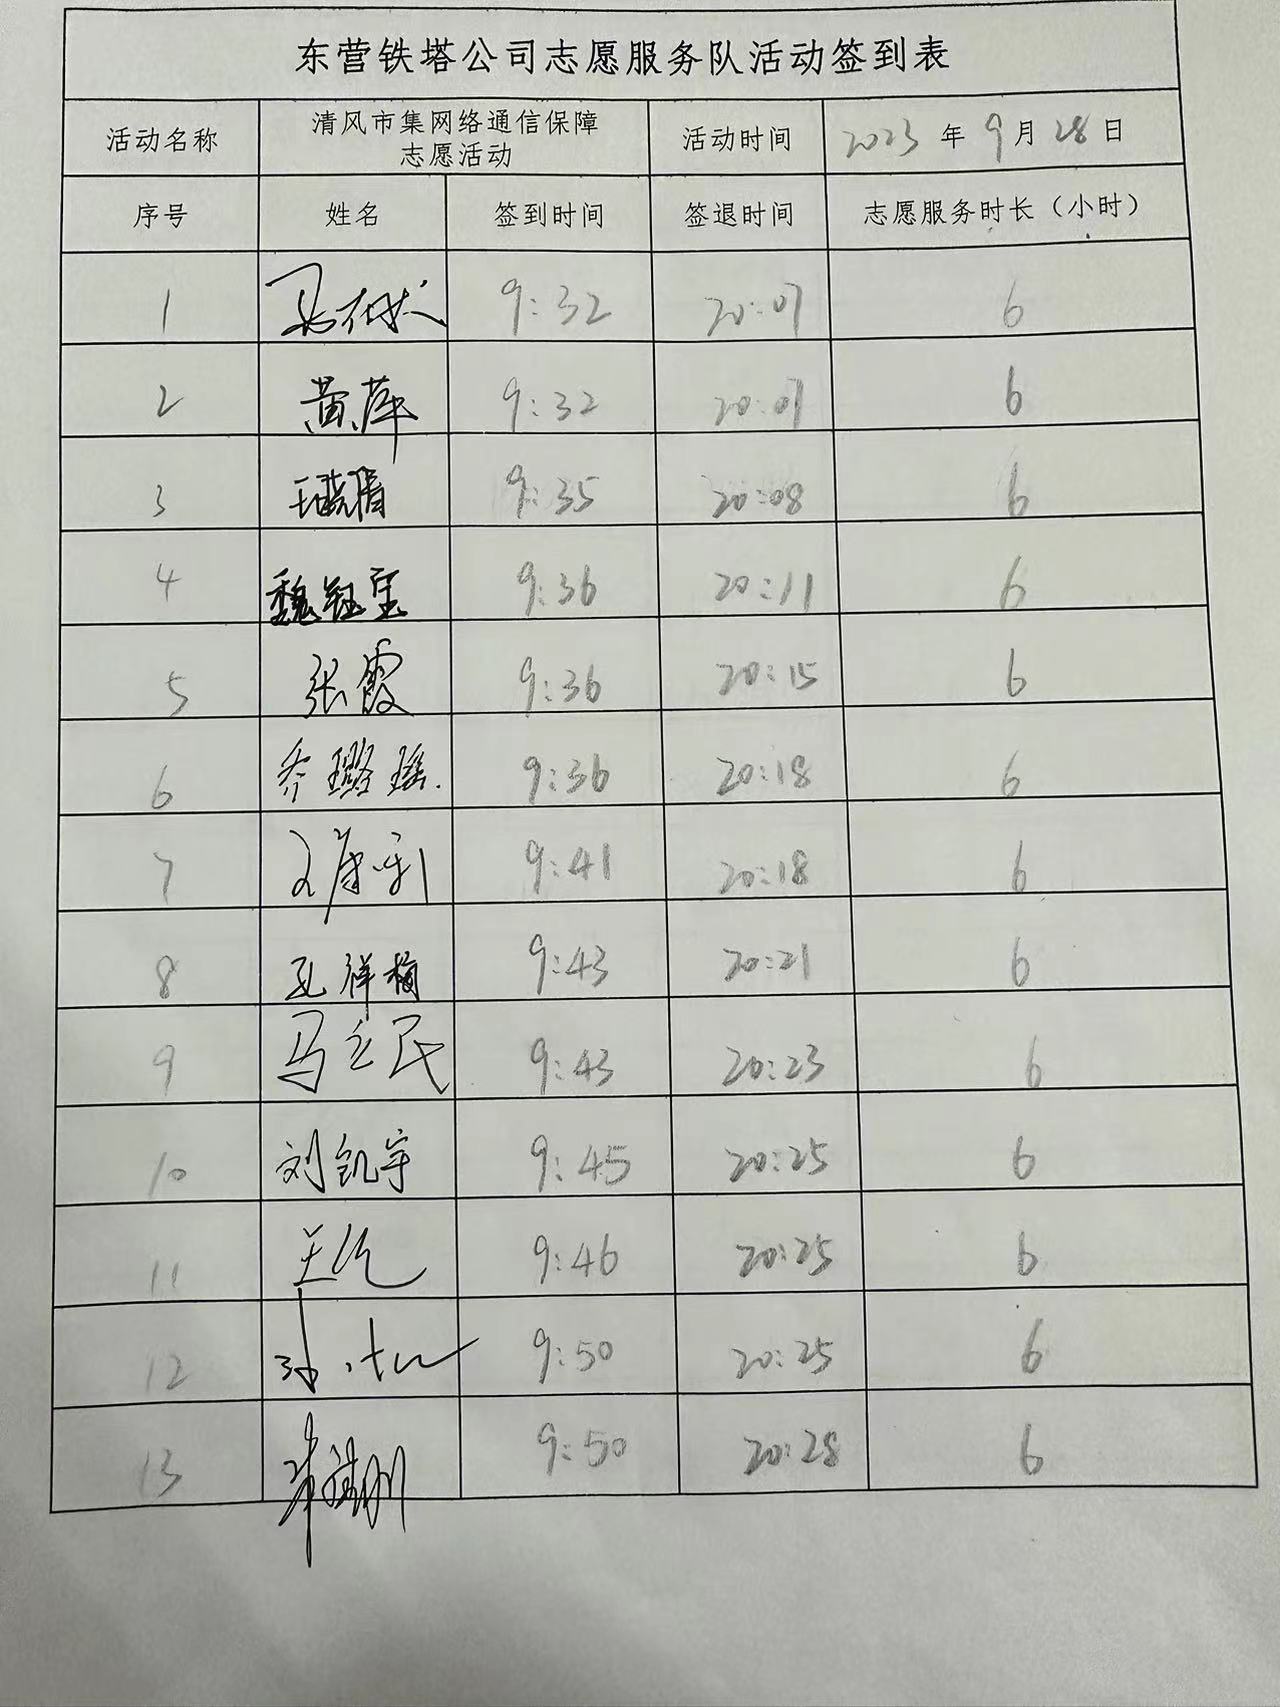 东营铁塔公司志愿服务队活动签到表
活动名称 清风市集网络通信保障志愿活动 活动时间 2023年9月28日
序号 姓名 签到时间 签退时间 志愿服务时长（小时）
1 9:32 20:07 6
2 黄萍 9:32 20:07 6
3 9:35 20:08 6
4 魏钰宝 9:36 20:11 6
5 张霞 9:36 20:15 6
6 乔璐瑶 9:36 20:18 6
7 9:41 20:18 6
8 孔祥梅 9:43 20:21 6
9 马立民 9:43 20:23 6
10 刘凯宇 9:45 20:25 6
11 9:46 20:25 6
12 9:50 20:25 6
13 9:50 20:28 6